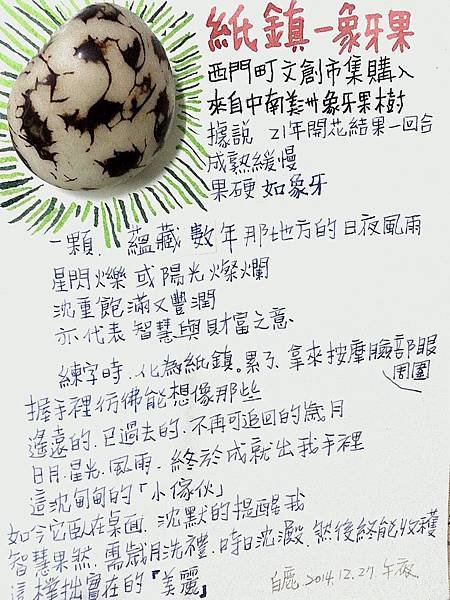 紙鎮－象牙果
西門町文創市集購入
來自中南美洲象牙果樹
據說 21年開花結果一回合
成熟緩慢
果硬如象牙
一顆．蘊藏數年那地方的日夜風雨
星閃爍或陽光燦爛
沈重飽滿又豐潤
亦代表智慧與財富之意．
練字時．化為紙鎮．累了．拿來按摩臉部眼
周圍
握手裡彷彿能想像那些
遙遠的．已過去的．不再可追回的歲月
日月．星光．風雨．終於成就出我手裡
這沈甸甸的「小傢伙」
如今它臥在桌面．沈默的提醒我
智慧果然．需歲月洗禮．時日沈澱．然後終能收穫
這樸拙實在的『美麗』
白鹿．2014.12.27.午夜